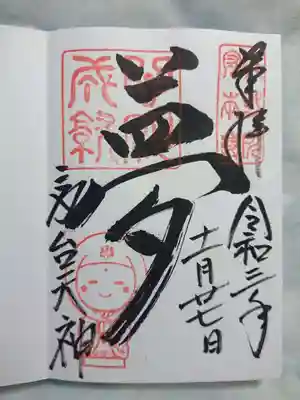 奉拝
夢
令和三年
十一月廿七日
台天神
成就